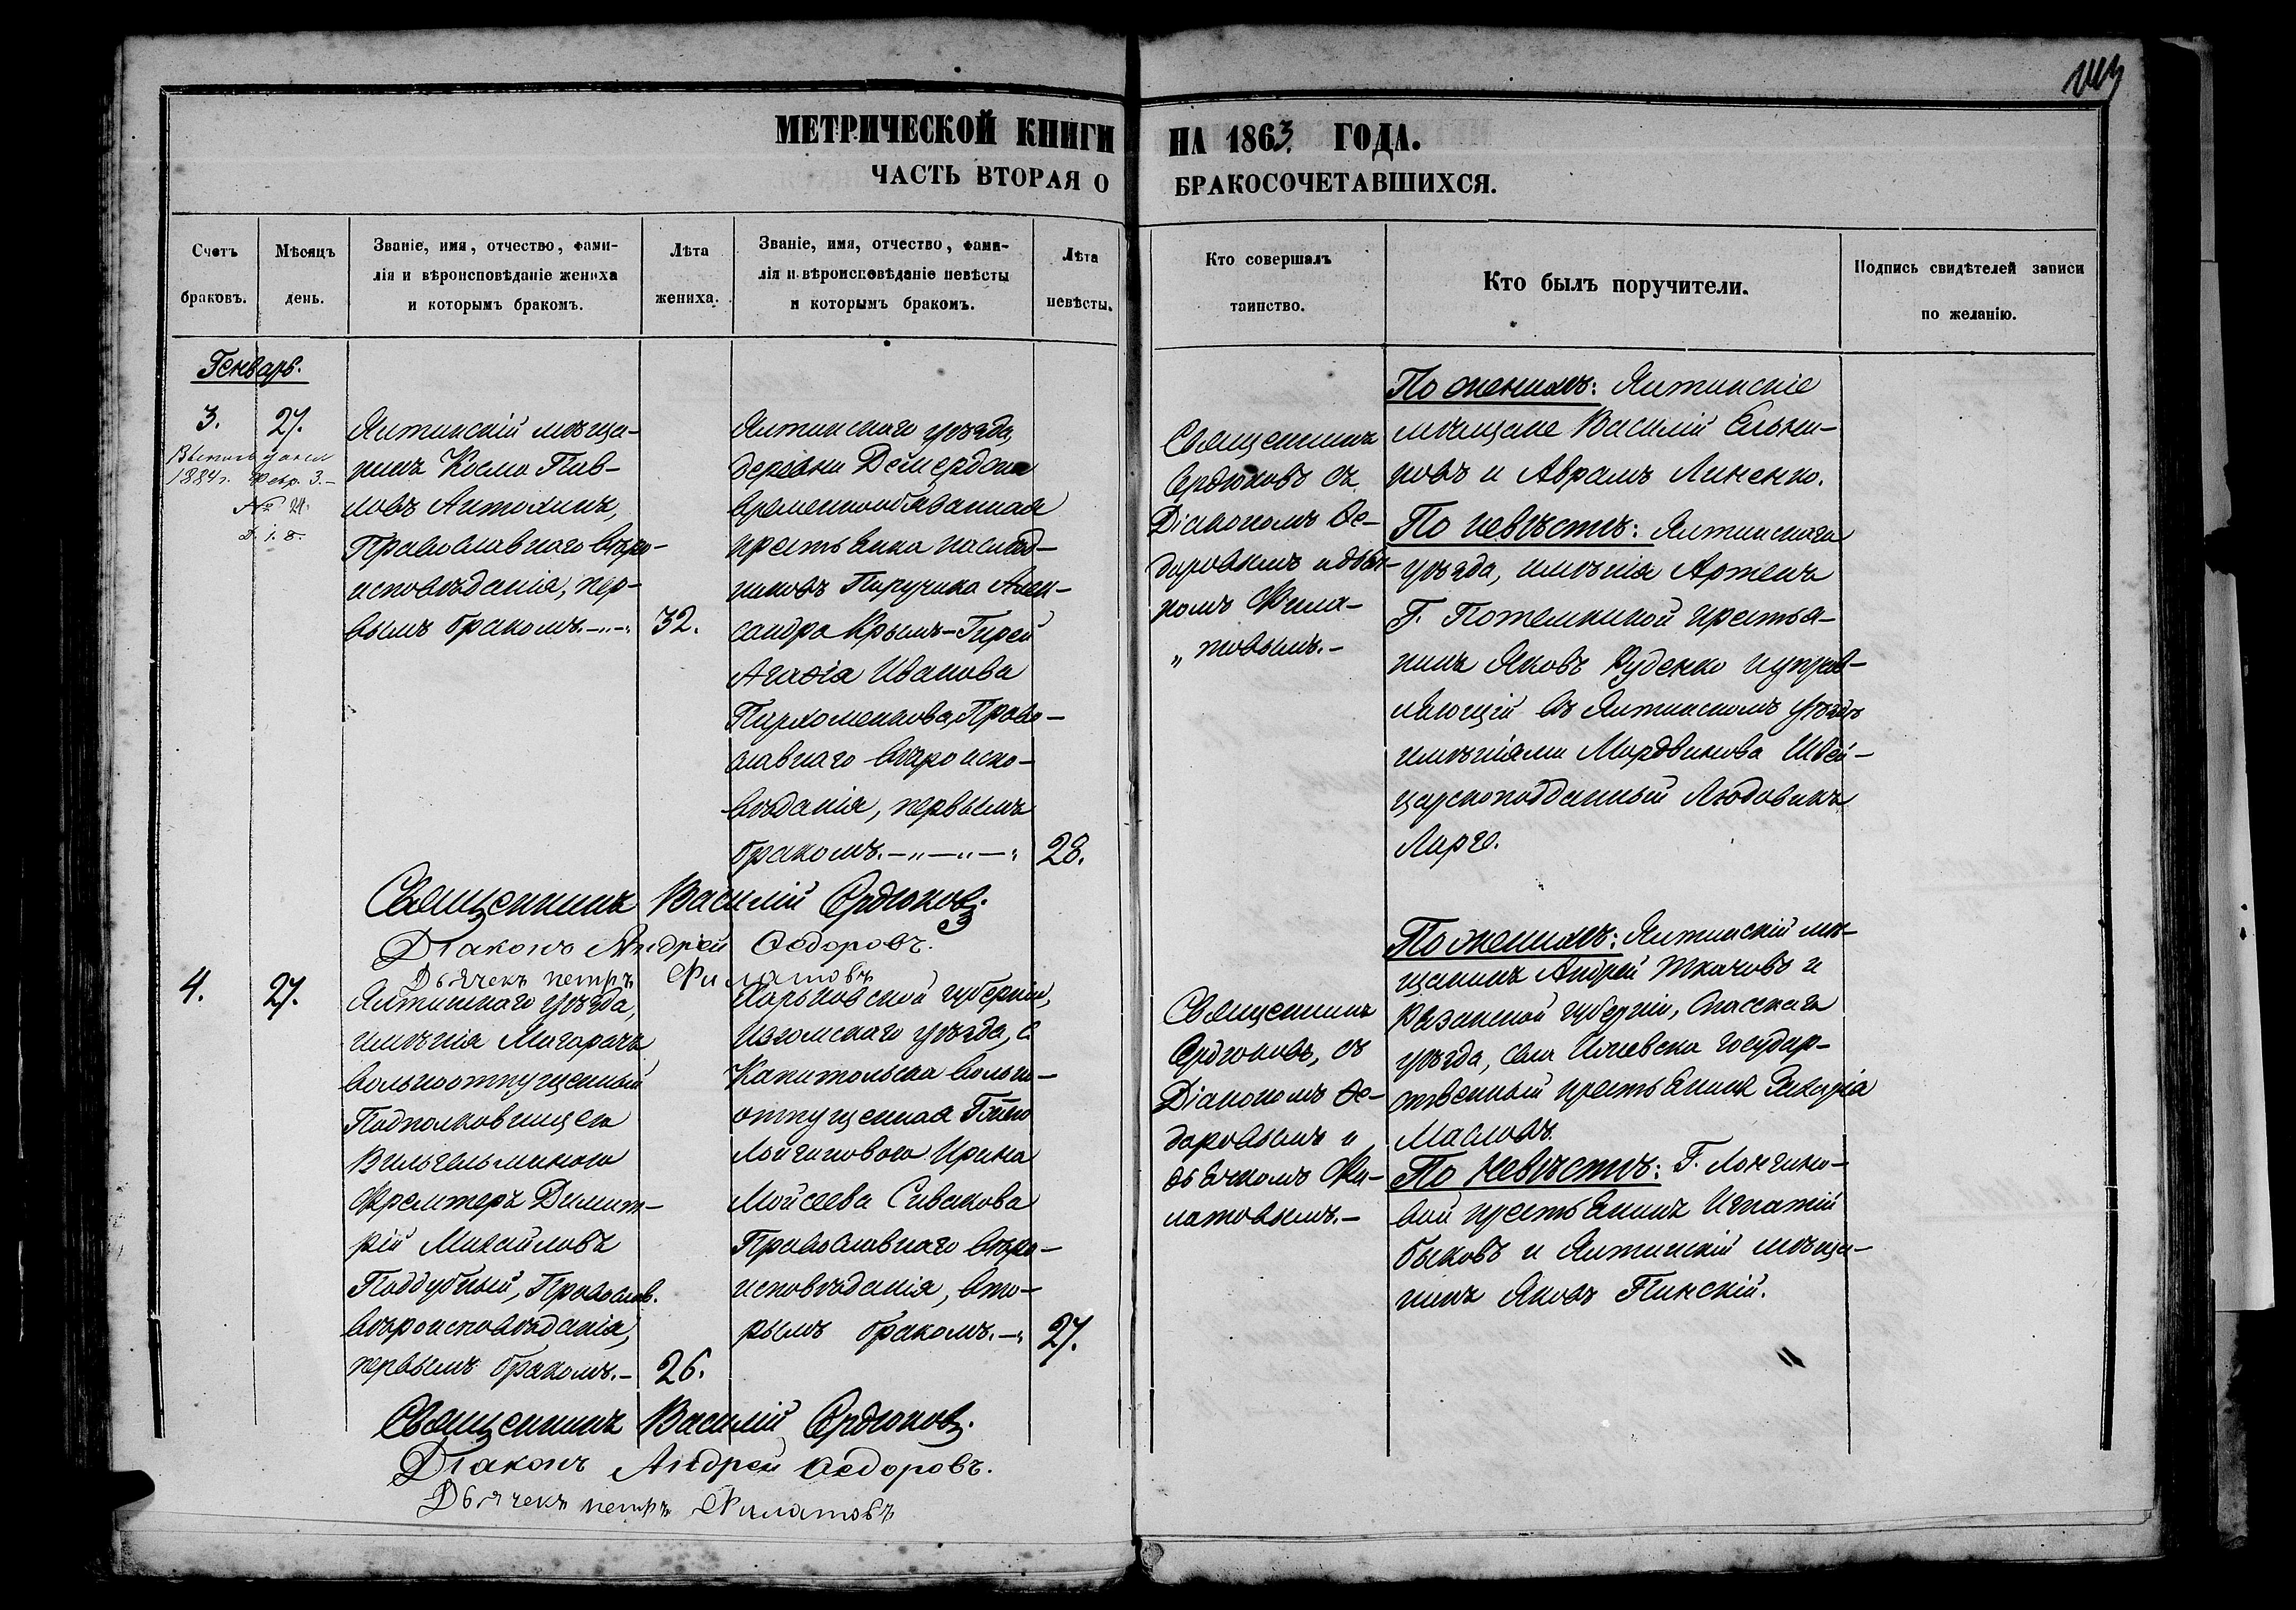 МЕТРИЧЕСКОЙ КНИГИ НА 1863 ГОДА.
ЧАСТЬ ВТОРАЯ О БРАКОСОЧЕТАВШИХСЯ.
Счетъ
браковъ.
Мѣсяцъ
день.
Званіе, имя, отчество, фами-
лія и вѣроисповѣданіе жениха
и которымъ бракомъ.
Лѣта
жениха.
Званіе, имя, отчество, фами-
лія и вѣроисповѣданіе невѣсты
и которымъ бракомъ.
Лѣта
невѣсты.
Кто совершалъ
таинство.
Кто былъ поручители.
Подпись свидѣтелей записи
по желанію.
Генварь.
3.
27.
1884 г. Февр. 3.-
Ялтинскій мѣща-
нинъ Косма Пав-
ловъ Антохинъ,
Православнаго вѣро-
исповѣданія, пер-
вымъ бракомъ.
32.
Ялтинскаго уѣзда,
деревни Демерджи
временнообязанная
крестьянка наслѣд-
никовъ Поручика Алек-
сандра Крымъ-Гирей
Агафія Иванова
Пархоменкова, Право-
славнаго вѣроиспо-
вѣданія, первымъ
бракомъ.
28.
Священникъ
Сердюковъ съ
Діакономъ Ѳе-
доровымъ и дья-
комъ Фила-
„ товымъ.-
По женихѣ: Ялтинскіе
мѣщане Василій Ельни-
ковъ и Аврамъ Линенко.
По невѣстѣ: Ялтинскаго
уѣзда, имѣнія Артекъ
Г. Потемкиной крестья-
нинъ Яковъ Руденко и управ-
ляющій въ Ялтинскомъ уѣздѣ
имѣніями Мордвинова Швей-
царскоподданный Людовикъ
Ларге.
Священникъ Василій Сердюковъ.
Діаконъ Андрей Ѳедоровъ.
Дьячекъ петръ Филатовъ
4.
27.
Ялтинскаго уѣзда,
имѣнія Магарачъ
вольноотпущенный
Подполковницею
Вильгельминою
Фремтеръ Димит-
рій Михайловъ
Поддубный, Православ.
вѣроисповѣданія,
первымъ бракомъ.-
26.
Харьковской губерніи,
Изюмскаго уѣзда, с.
Капитольска вольно-
отпущенная Г-жею
Лонгиновою Ирина
Мойсеева Сивакова
Православнаго вѣро-
исповѣданія, вто-
рымъ бракомъ.-
27.
Священникъ
Сердюковъ, съ
Діакономъ Ѳе-
доровымъ и
дьячкомъ Фи-
латовымъ.-
По женихѣ: Ялтинскій мѣ-
щанинъ Андрей Ткачовъ и
Казанской губерніи, Спасскаго
уѣзда, села государ-
ственный крестьянинъ Захарія
Масловъ.
По невѣстѣ: Г. Лонгино-
вой крестьянинъ Игнатій
Быковъ и Ялтинскій мѣща-
нинъ Яковъ Пинскій.
Священникъ Василій Сердюковъ.
Діаконъ Андрей Ѳедоровъ.
Дьячекъ петръ Филатовъ